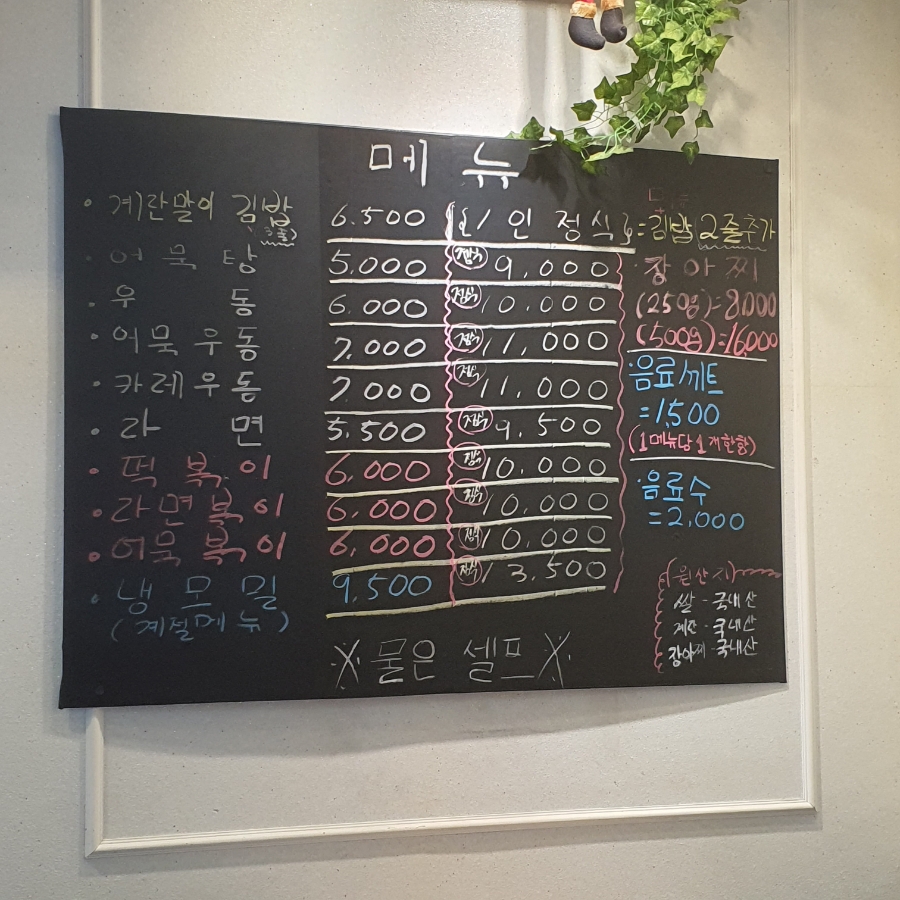 메 뉴
· 계란말이 김밥 6.500 {1인 정식} =김밥 2줄추가
· 어 묵 탕 5.000 정식 9,000
· 우 동 6.000 정식 10,000
· 어묵우동 7.000 정식 11,000
· 카레우동 7.000 정식 11,000
· 라 면 5.500 정식 9,500
· 떡 볶 이 6.000 정식 10,000
· 라면볶이 6.000 정식 10,000
· 어묵볶이 6.000 정식 10,000
· 냉 모 밀 9.500 정식 13.500
(계절메뉴)
※물은 셀프※
장아찌
(250g)=8,000
(500g)=16,000
·음료세트
=1,500
(1메뉴당 1개한함)
·음료수
=2,000
(원산지)
쌀 - 국내산
계란 - 국내산
장아찌 - 국내산